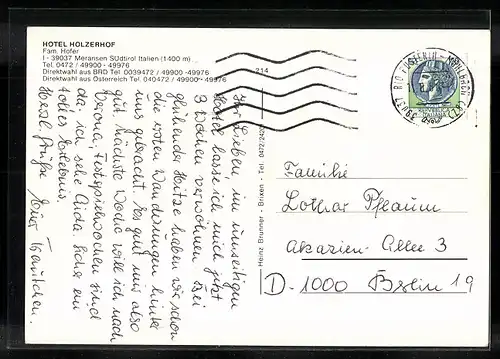 HOTEL HOLZERHOF
Fam. Hofer
I - 39037 Meransen Südtirol Italien (1400 m)
Tel. 0472 / 49900 - 49976
Direktwahl aus BRD Tel. 0039472 / 49900 - 49976
Direktwahl aus Österreich Tel. 040472 / 49900 - 49976
214
Ihr Lieben im umseitigen
Hotel lasse ich mich jetzt
3 Wochen verwöhnen. Bei
glühender Hitze haben wir schon
die ersten Wanderungen hinter
uns gebracht. Es geht mir also
gut. Nächste Woche will ich nach
Verona, Festspielwochen sind
da, ich sehe Aida. Sicher ein
tolles Erlebnis.
Herzl. Grüße Euer
Heinz Brunner - Brixen - Tel. 0472-
ITALIANA
39037 RIO PUSTERIA - (BZ)
Familie
Lothar Pflaum
Akazien-Allee 3
D-1000 Berlin 19